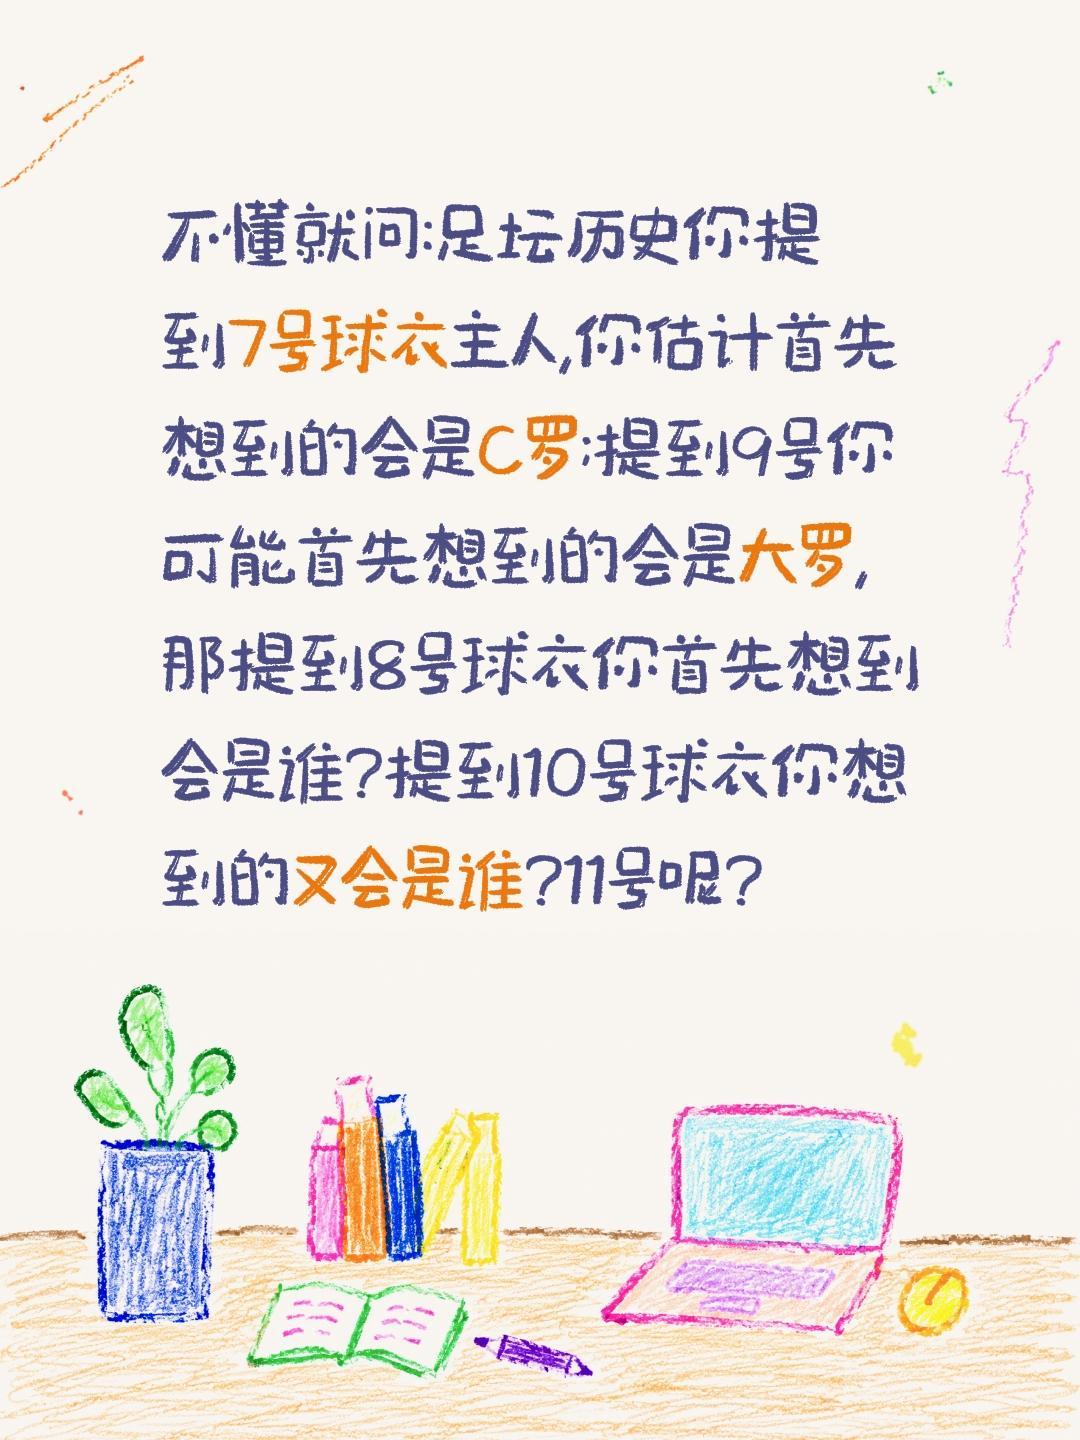 不懂就问:足坛历史你提
到7号球衣主人,你估计首先
想到的会是C罗;提到9号你
可能首先想到的会是大罗,
那提到8号球衣你首先想到
会是谁?提到10号球衣你想
到的又会是谁?11号呢?